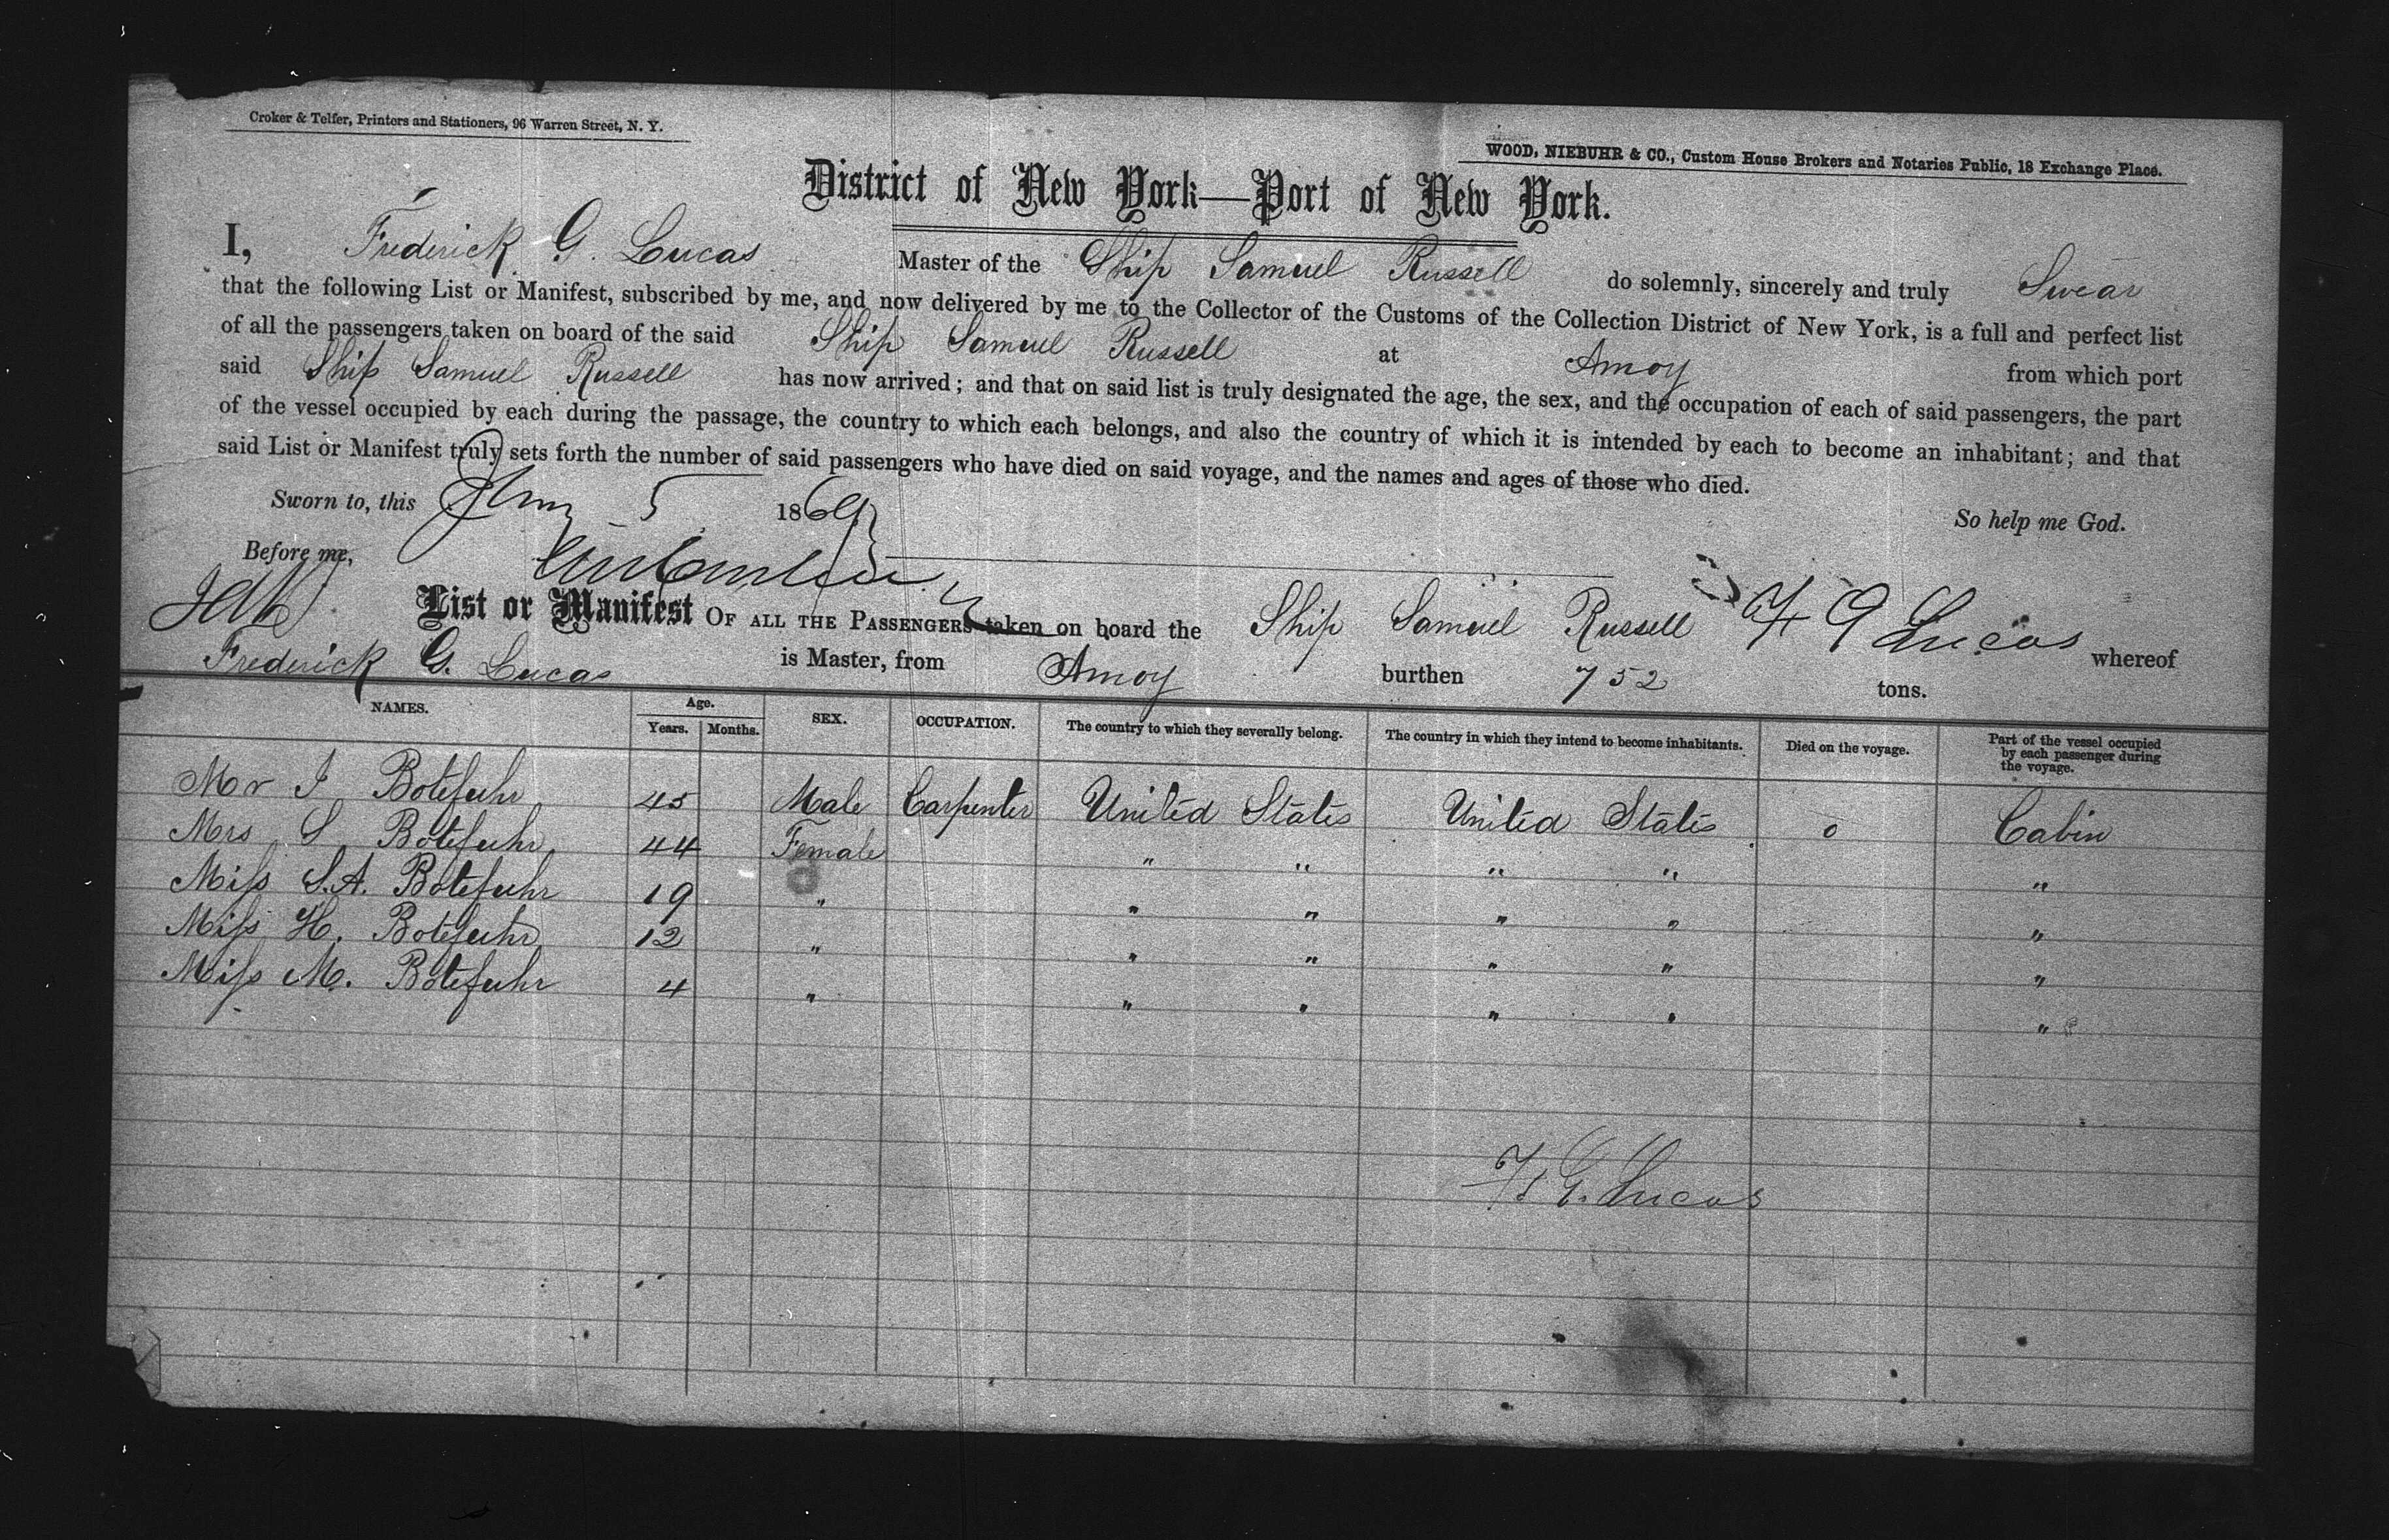 Croker & Telfer, Printers and Stationers, 96 Warren Street, N. Y.
WOOD, NIEBUHR & CO., Custom House Brokers and Notaries Public, 18 Exchange Place.
District of New York—Port of New York.
I, Frederick G. Lucas Master of the Ship Samuel Russell do solemnly, sincerely and truly Swear
that the following List or Manifest, subscribed by me, and now delivered by me to the Collector of the Customs of the Collection District of New York, is a full and perfect list
of all the passengers taken on board of the said Ship Samuel Russell at Amoy from which port
said Ship Samuel Russell has now arrived; and that on said list is truly designated the age, the sex, and the occupation of each of said passengers, the part
of the vessel occupied by each during the passage, the country to which each belongs, and also the country of which it is intended by each to become an inhabitant; and that
said List or Manifest truly sets forth the number of said passengers who have died on said voyage, and the names and ages of those who died.
Sworn to, this 5 1869 So help me God.
Before me,
F G Lucas
List or Manifest OF ALL THE PASSENGERS taken on board the Ship Samuel Russell whereof
Frederick G. Lucas is Master, from Amoy burthen 752 tons.
NAMES. Age. Years. Months. SEX. OCCUPATION. The country to which they severally belong. The country in which they intend to become inhabitants. Died on the voyage. Part of the vessel occupied by each passenger during the voyage.
Mr J Botefuhr 45 Male Carpenter United States United States 0 Cabin
Mrs S Botefuhr 44 Female " " " " "
Miss S.A. Botefuhr 19 " " " " " "
Miss H. Botefuhr 12 " " " " " "
Miss M. Botefuhr 4 " " " " " "
F G. Lucas